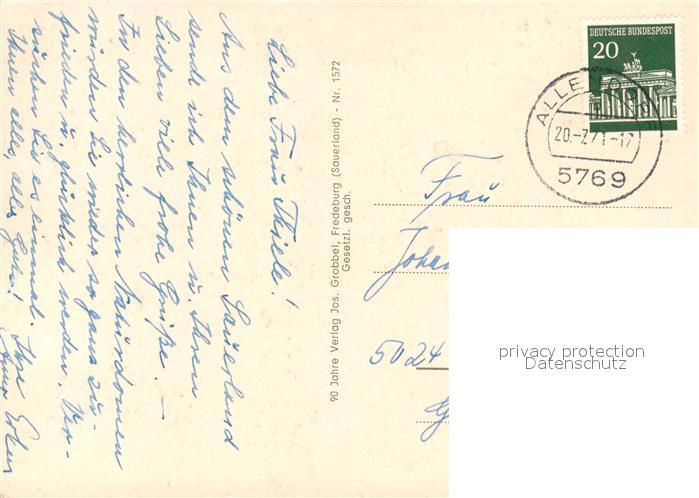 Liebe Frau Thiele!
Aus dem schönen Sauerland
sende ich Ihnen u. Ihren
Lieben viele frohe Grüße. –
In den herrlichen Naturdomen
würden Sie wieder so ganz zu-
frieden u. glücklich werden. Ver-
suchen Sie es einmal.
Ihnen alle, alles Gute! Ihre
90 Jahre Verlag Jos. Grobbel, Fredeburg (Sauerland) - Nr. 1572
Gesetzl. gesch.
DEUTSCHE BUNDESPOST
20
20.-7.71-17
5769
Frau
5024
privacy protection
Datenschutz